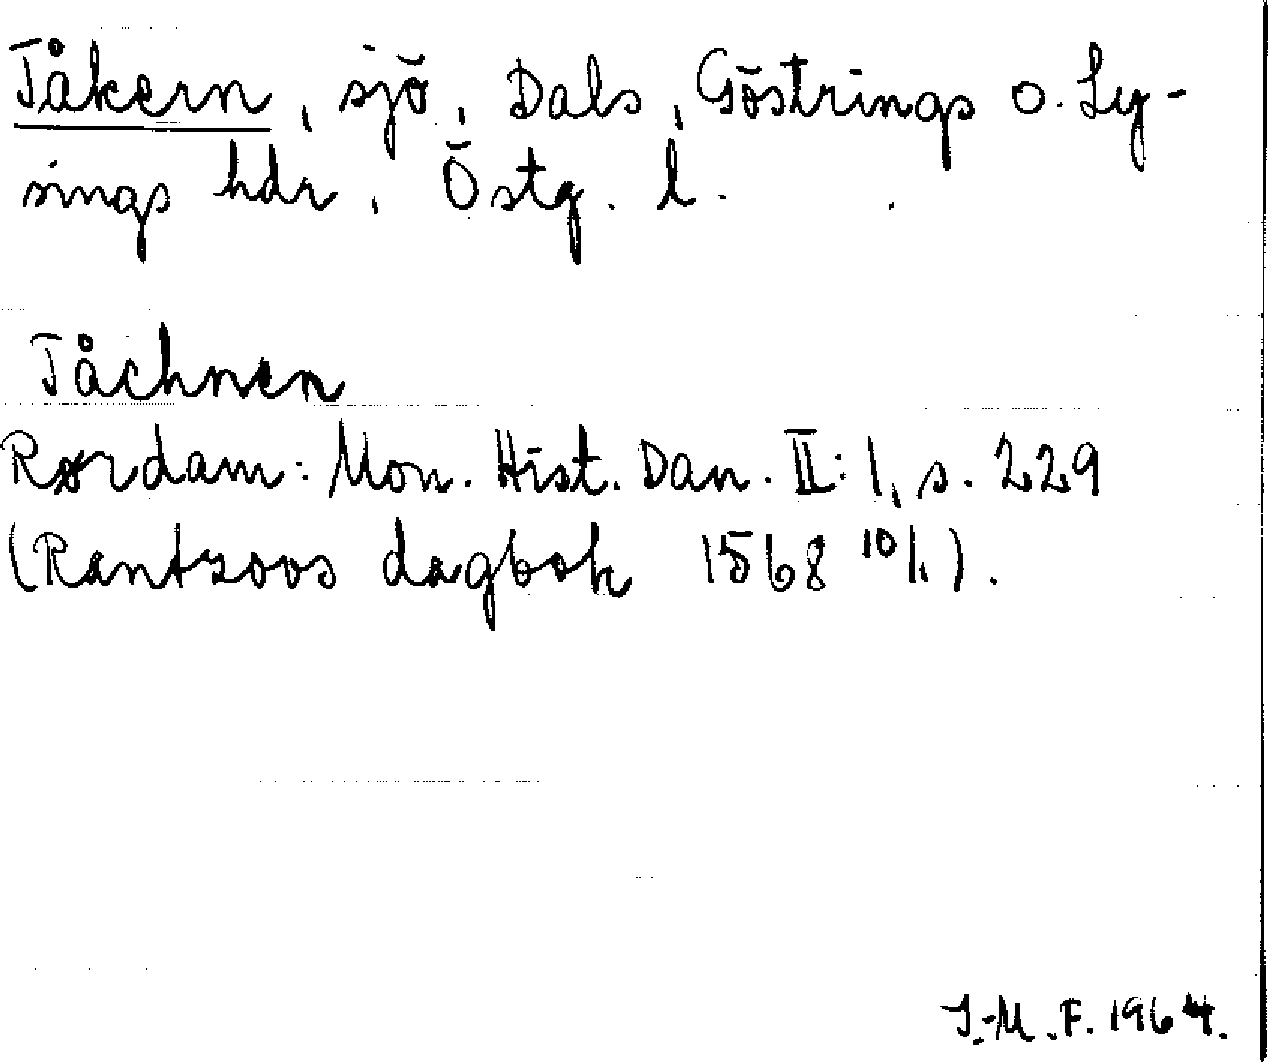 Tåkern, sjö, Dals, Göstrings o. Ly-
sings hdr, Östg. l.
Tåchnen
Rørdam: Mon. Hist. Dan. II: 1, s. 229
(Rantzoos dagbok 1568 10/1).
I.-M. F. 1964.